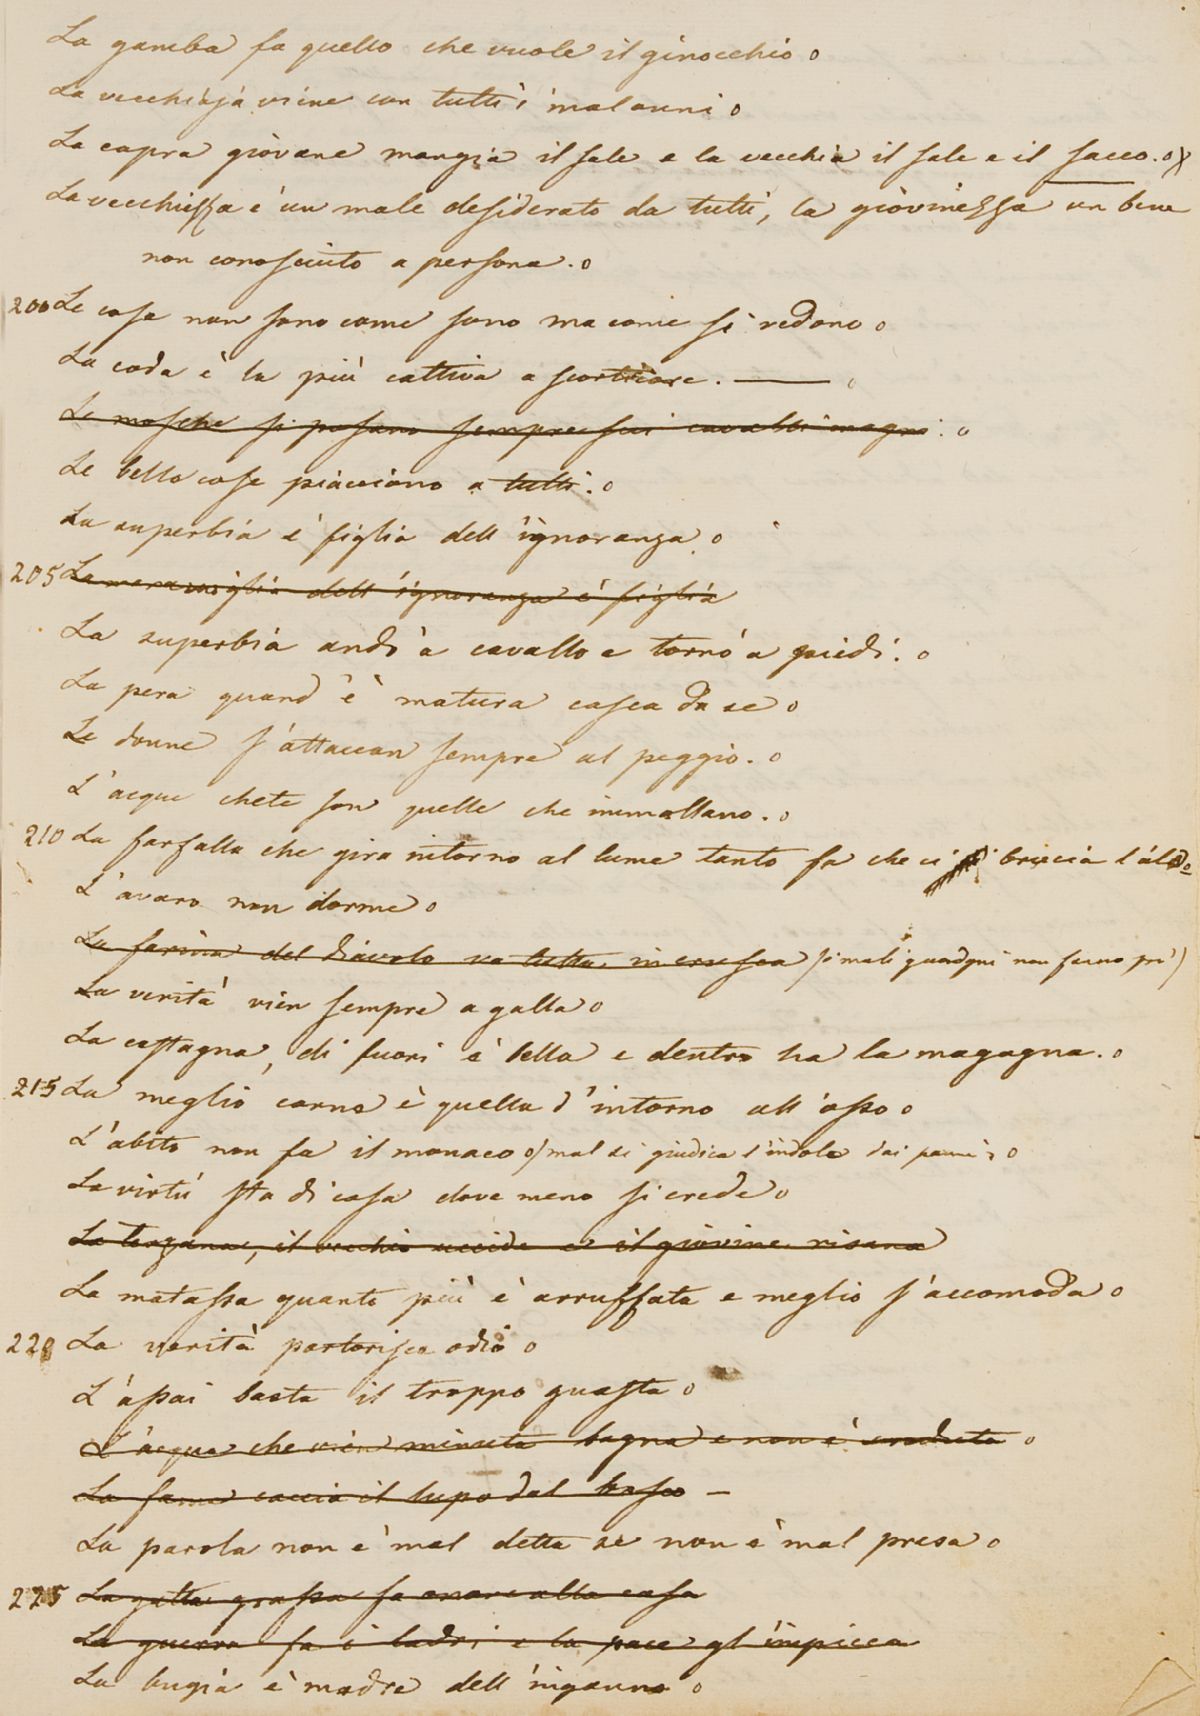 La gamba fa quello che vuole il ginocchio o
La vecchiaja viene con tutti i malanni o
La capra giovane mangia il sale e la vecchia il sale e il sacco. o
La vecchiezza è un male desiderato da tutti, la giovinezza un bene
non conosciuto a persona. o
200 Le cose non sono come sono ma come si vedono o
La coda è la più cattiva a scorticare. — o
Le mosche si posano sempre sui cavalli magri. o
Le belle cose piacciono a tutti. o
La superbia è figlia dell'ignoranza o
205 La meraviglia dell'ignoranza è figlia
La superbia andò a cavallo e tornò a piedi. o
La pera quand'è matura casca da se o
Le donne s'attaccan sempre al peggio. o
L'acque chete son quelle che immollano. o
210 La farfalla che gira intorno al lume tanto fa che ci brucia l'ale o
L'avaro non dorme o
La farina del Diavolo va tutta in crusca (i mali guadagni non fanno prò)
La verità vien sempre a galla o
La castagna, di fuori è bella e dentro ha la magagna. o
215 La meglio carne è quella d'intorno all'osso o
L'abito non fa il monaco o) mal si giudica l'indole dai panni o
La virtù sta di casa dove meno si crede o
La terzana, il vecchio uccide e il giovine risana
La matassa quanto più è arruffata e meglio s'accomoda o
220 La verità partorisce odio o
L'assai basta il troppo guasta o
L'acqua che vien minuta bagna e non è creduta o
La fame caccia il lupo dal bosco –
La parola non è mal detta se non è mal presa o
225 La gatta grassa fa onore alla casa
La guerra fa i ladri e la pace gl'impicca
La bugia è madre dell'inganno o